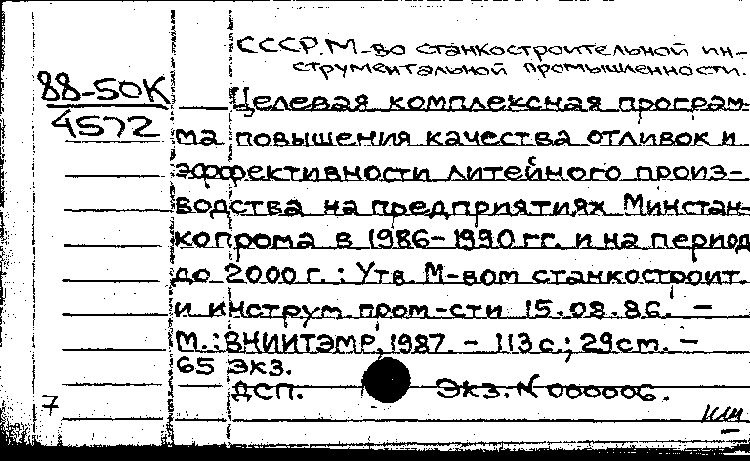 СССР. М-во станкостроительной ин-
струментальной промышленности.
88-50К
4572
Целевая комплексная програм-
ма повышения качества отливок и
эффективности литейного произ-
водства на предприятиях Минстан-
копрома в 1986-1990 гг. и на период
до 2000 г. : Утв. М-вом станкостроит.
и инструм. пром-сти 15.08.86. -
М.: ВНИИТЭМР, 1987. - 113 с.; 29 см. -
65 экз.
ДСП. Экз. N 000006.
7